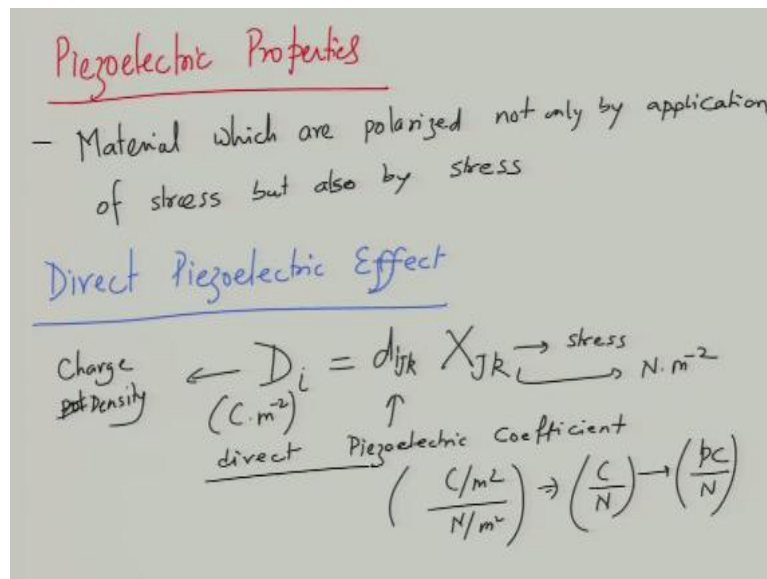 Piezoelectric Properties
- Material which are polarized not only by application
of stress but also by stress
Direct Piezoelectric Effect
Charge Density ← D_i = d_ijk X_jk → stress
(C·m⁻²) → N·m⁻²
↑
direct Piezoelectric Coefficient
( (C/m²)/(N/m²) ) ⇒ (C/N) → (pC/N)